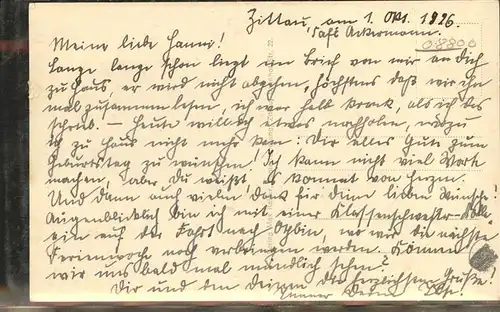 Zittau, am 1. Okt. 1926.
Café Ackermann.
08800
Meine liebe Hanni!
Lange lange schon liegt ein Brief von mir an dich
zu Haus, er wird nicht abgehen, höchstens daß wir ihn
mal zusammen lesen, ich war halb krank, als ich das
schrieb. – Heute will ich etwas nachholen, wozu
ich zu Haus nicht mehr kam: Dir alles Gute zum
Geburtstag zu wünschen! Ich kann nicht viel Worte
machen, aber du weißt, es kommt von Herzen.
Und dann auch vielen Dank für deine lieben Wünsche!
Augenblicklich bin ich mit einer Klassenschwester
auf der Fahrt nach Oybin, wo wir die nächste
Ferienwoche noch verbringen werden. Können
wir uns bald mal mündlich sehen?
Dir und den Deinen die herzlichsten Grüße!
Immer Deine